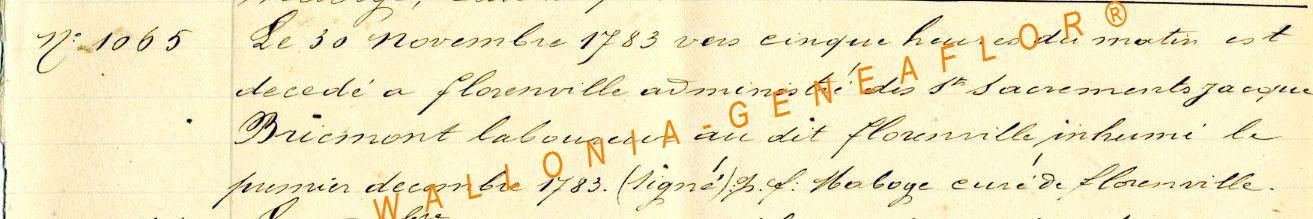 N° 1065 Le 30 Novembre 1783 vers cinque heures du matin est
decedé a florenville administré des Sts Sacrements jacque
Bricmont laboureur au dit florenville inhumé le
premier decembre 1783. (signé) p. f. Maboge curé de florenville.
WALLONIA-GENEAFLOR®